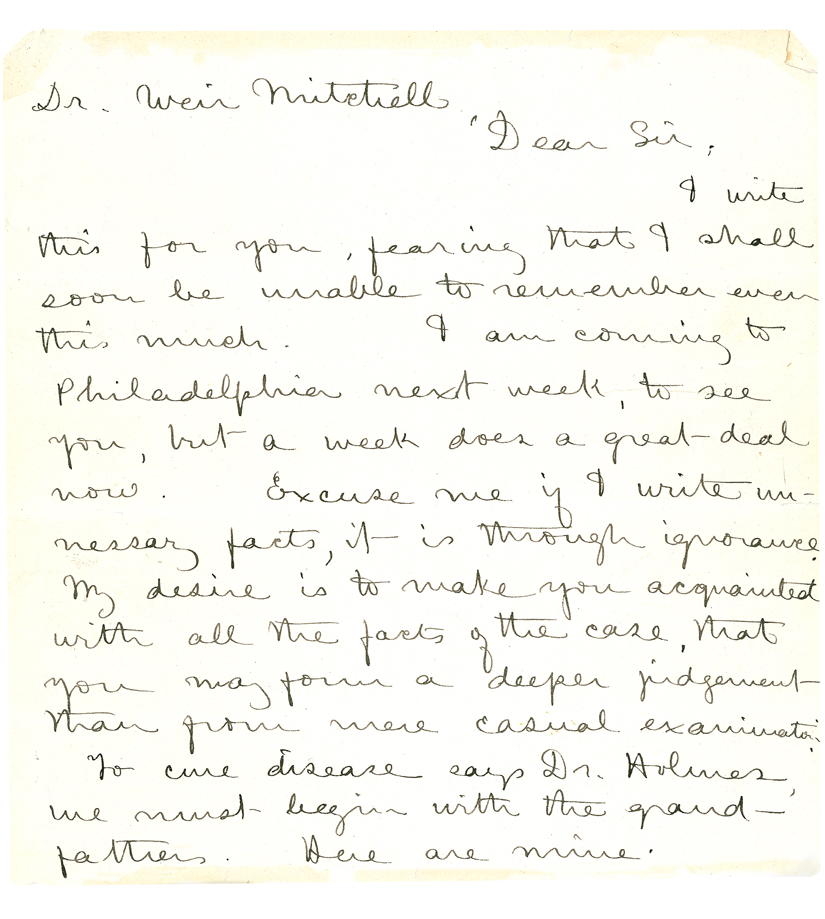 Dr. Weir Mitchell
Dear Sir;
I write
this for you, fearing that I shall
soon be unable to remember even
this much. I am coming to
Philadelphia next week, to see
you, but a week does a great deal
now. Excuse me if I write un-
nessary facts, it is through ignorance.
My desire is to make you acquainted
with all the facts of the case, that
you may form a deeper judgement
than from mere casual examination.
To cure disease says Dr. Holmes,
we must begin with the grand-
fathers. Here are mine.